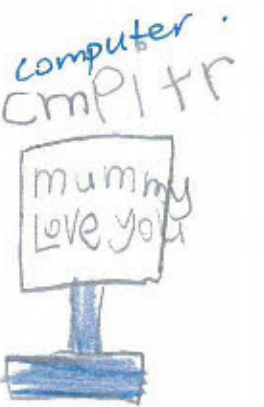 computer.
cmPitr
mummy
Love you